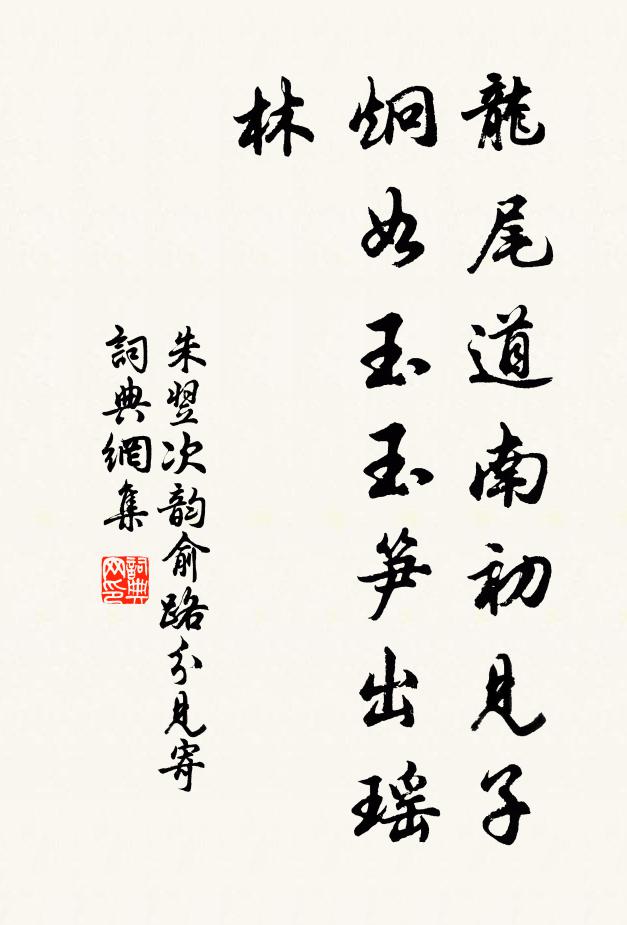 龍尾道南初見子
炯如玉玉笋出瑶
林
朱翌次韵俞路分見寄
詞典網集
詞典网印